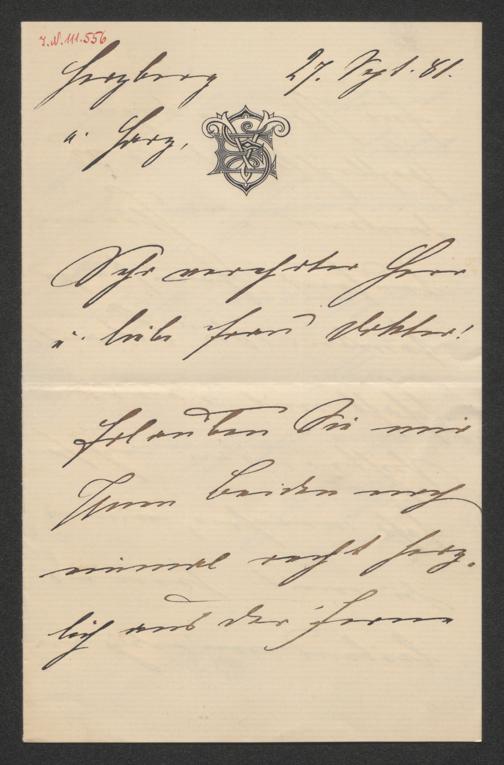 I.N. 111.556
Herzberg 27. Sept. 81.
a. Harz,
Sehr verehrter Herr
u. liebe Frau Doktor!
Erlauben Sie mir
Ihnen beiden noch
einmal recht herz-
lich aus der Ferne